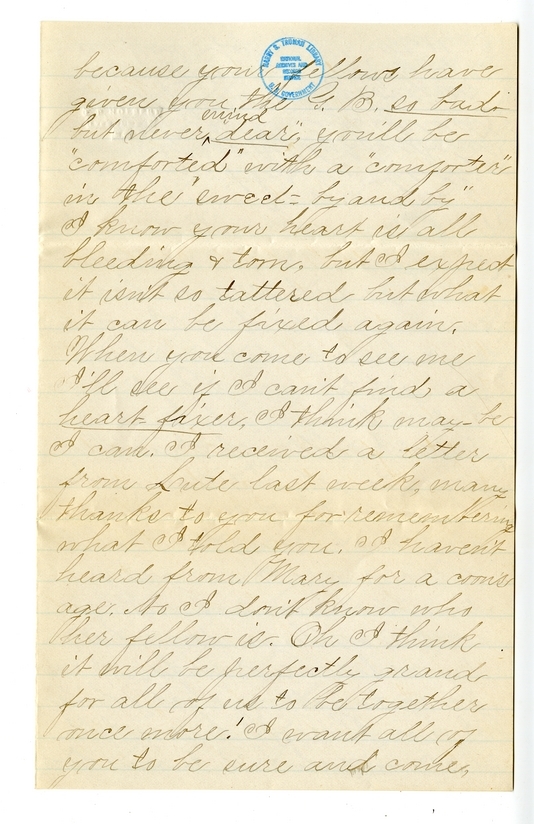 HARRY S. TRUMAN LIBRARY
NATIONAL
ARCHIVES AND
RECORDS
SERVICE
U.S. GOVERNMENT
because your fellows have
given you the G. B. so bad-
but never mind "dear", you'll be
"comforted" with a "comforter"
in the "sweet- by and by"
I know your heart is all
bleeding & torn, but I expect
it isn't so tattered but what
it can be fixed again.
When you come to see me
I'll see if I can't find a
heart-fixer, I think may-be
I can. I received a letter
from Lute last week, many
thanks to you for remembering
what I told you. I haven't
heard from Mary for a coon's
age. No I don't know who
her fellow is. Oh I think
it will be perfectly grand
for all of us to be together
once more! I want all of
you to be sure and come,